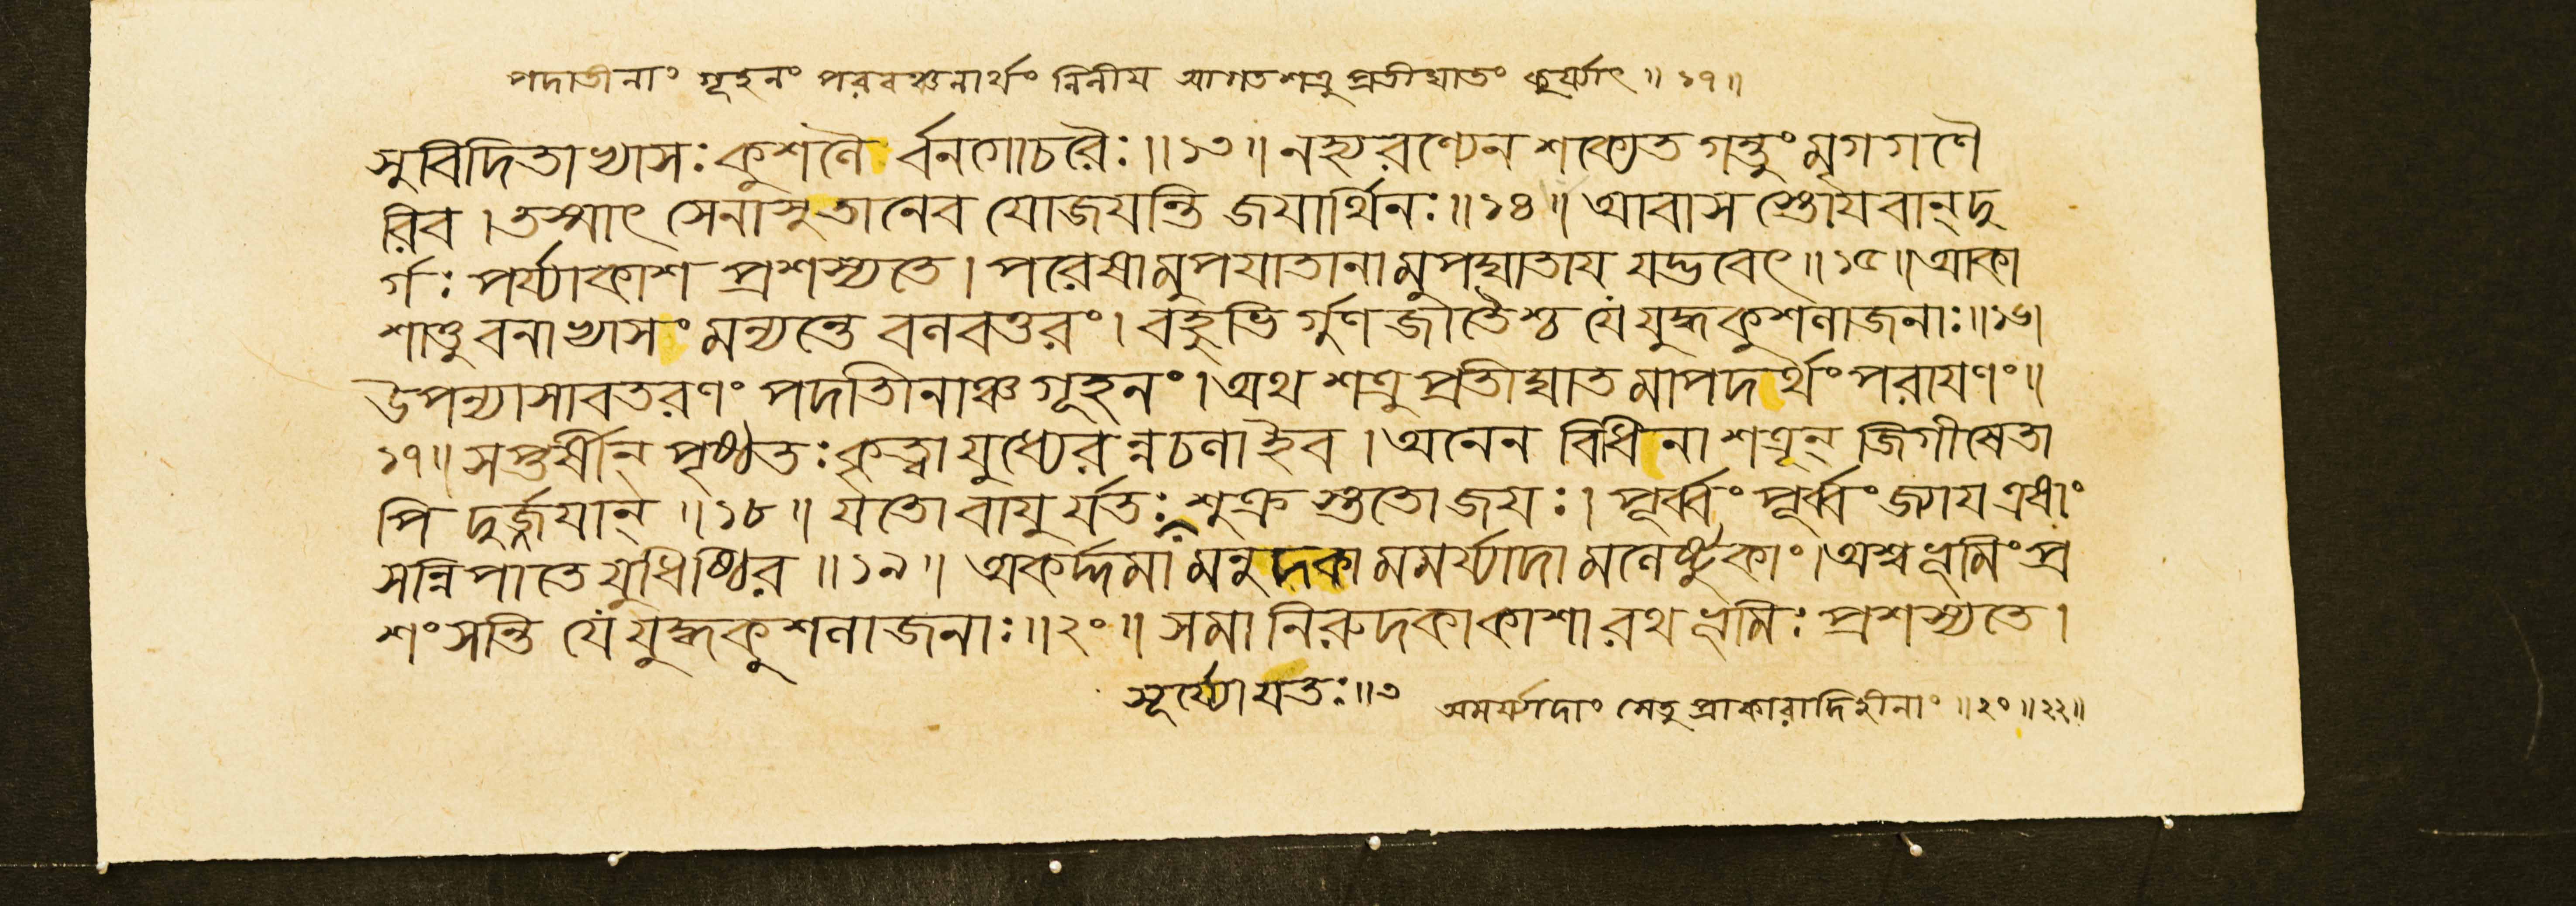 পদাতীনাং গূহনং পরবঞ্চনার্থং নিলীয় আগতশত্রুপ্রতীঘাতং কুর্য্যাৎ ॥ ১৭॥
সুবিদিতাভ্যাসঃ কুশলৈ র্বনগোচরৈঃ ॥১৩॥ নহ্যরণ্যেন শক্যেত গন্তুং মৃগগণৈ
রিব । তস্মাৎ সেনাসুতানেব যোজয়ন্তি জয়ার্থিনঃ ॥১৪॥ আবাস স্তোয়বান্ দু
র্গঃ পর্য্যাকাশ প্রশস্যতে । পরেষামুপযাতানামুপঘাতায় যদ্ভবেৎ ॥১৫॥ আকা
শাত্তু বনাভ্যাসং মন্যন্তে বলবত্তরং । বহুভি র্গুণজাতৈশ্চ যে যুদ্ধকুশলাজনাঃ ॥১৬।
উপন্যাসাবতরণং পদাতীনাঞ্চ গূহনং । অথ শত্রুপ্রতীঘাতমাপদর্থং পরায়ণং ॥
১৭॥ সপ্তর্ষীন্ পৃষ্ঠতঃ কৃত্বা যুধ্যেরন্নচলাইব । অনেন বিধিনা শত্রূন্ জিগীষেতা
পি দুর্জ্জয়ান্ ॥১৮॥ যতো বায়ু র্যতঃ শুক্র স্ততো জয়ঃ । পূর্ব্বং পূর্ব্বং জ্যায় এষাং
সন্নিপাতে যুধিষ্ঠির ॥১৯॥ অকর্দ্দমা মনুদকা মমর্য্যাদা মলোষ্টুকাং । অশ্বভূমিং প্র
শংসন্তি যে যুদ্ধকুশলাজনাঃ ॥২০॥ সমা নিরুদকাকাশা রথভূমিঃ প্রশস্যতে ।
সূর্য্যো যতঃ ॥৩
অমর্য্যাদাং সেতুপ্রাকারাদিহীনাং ॥২০॥২২॥